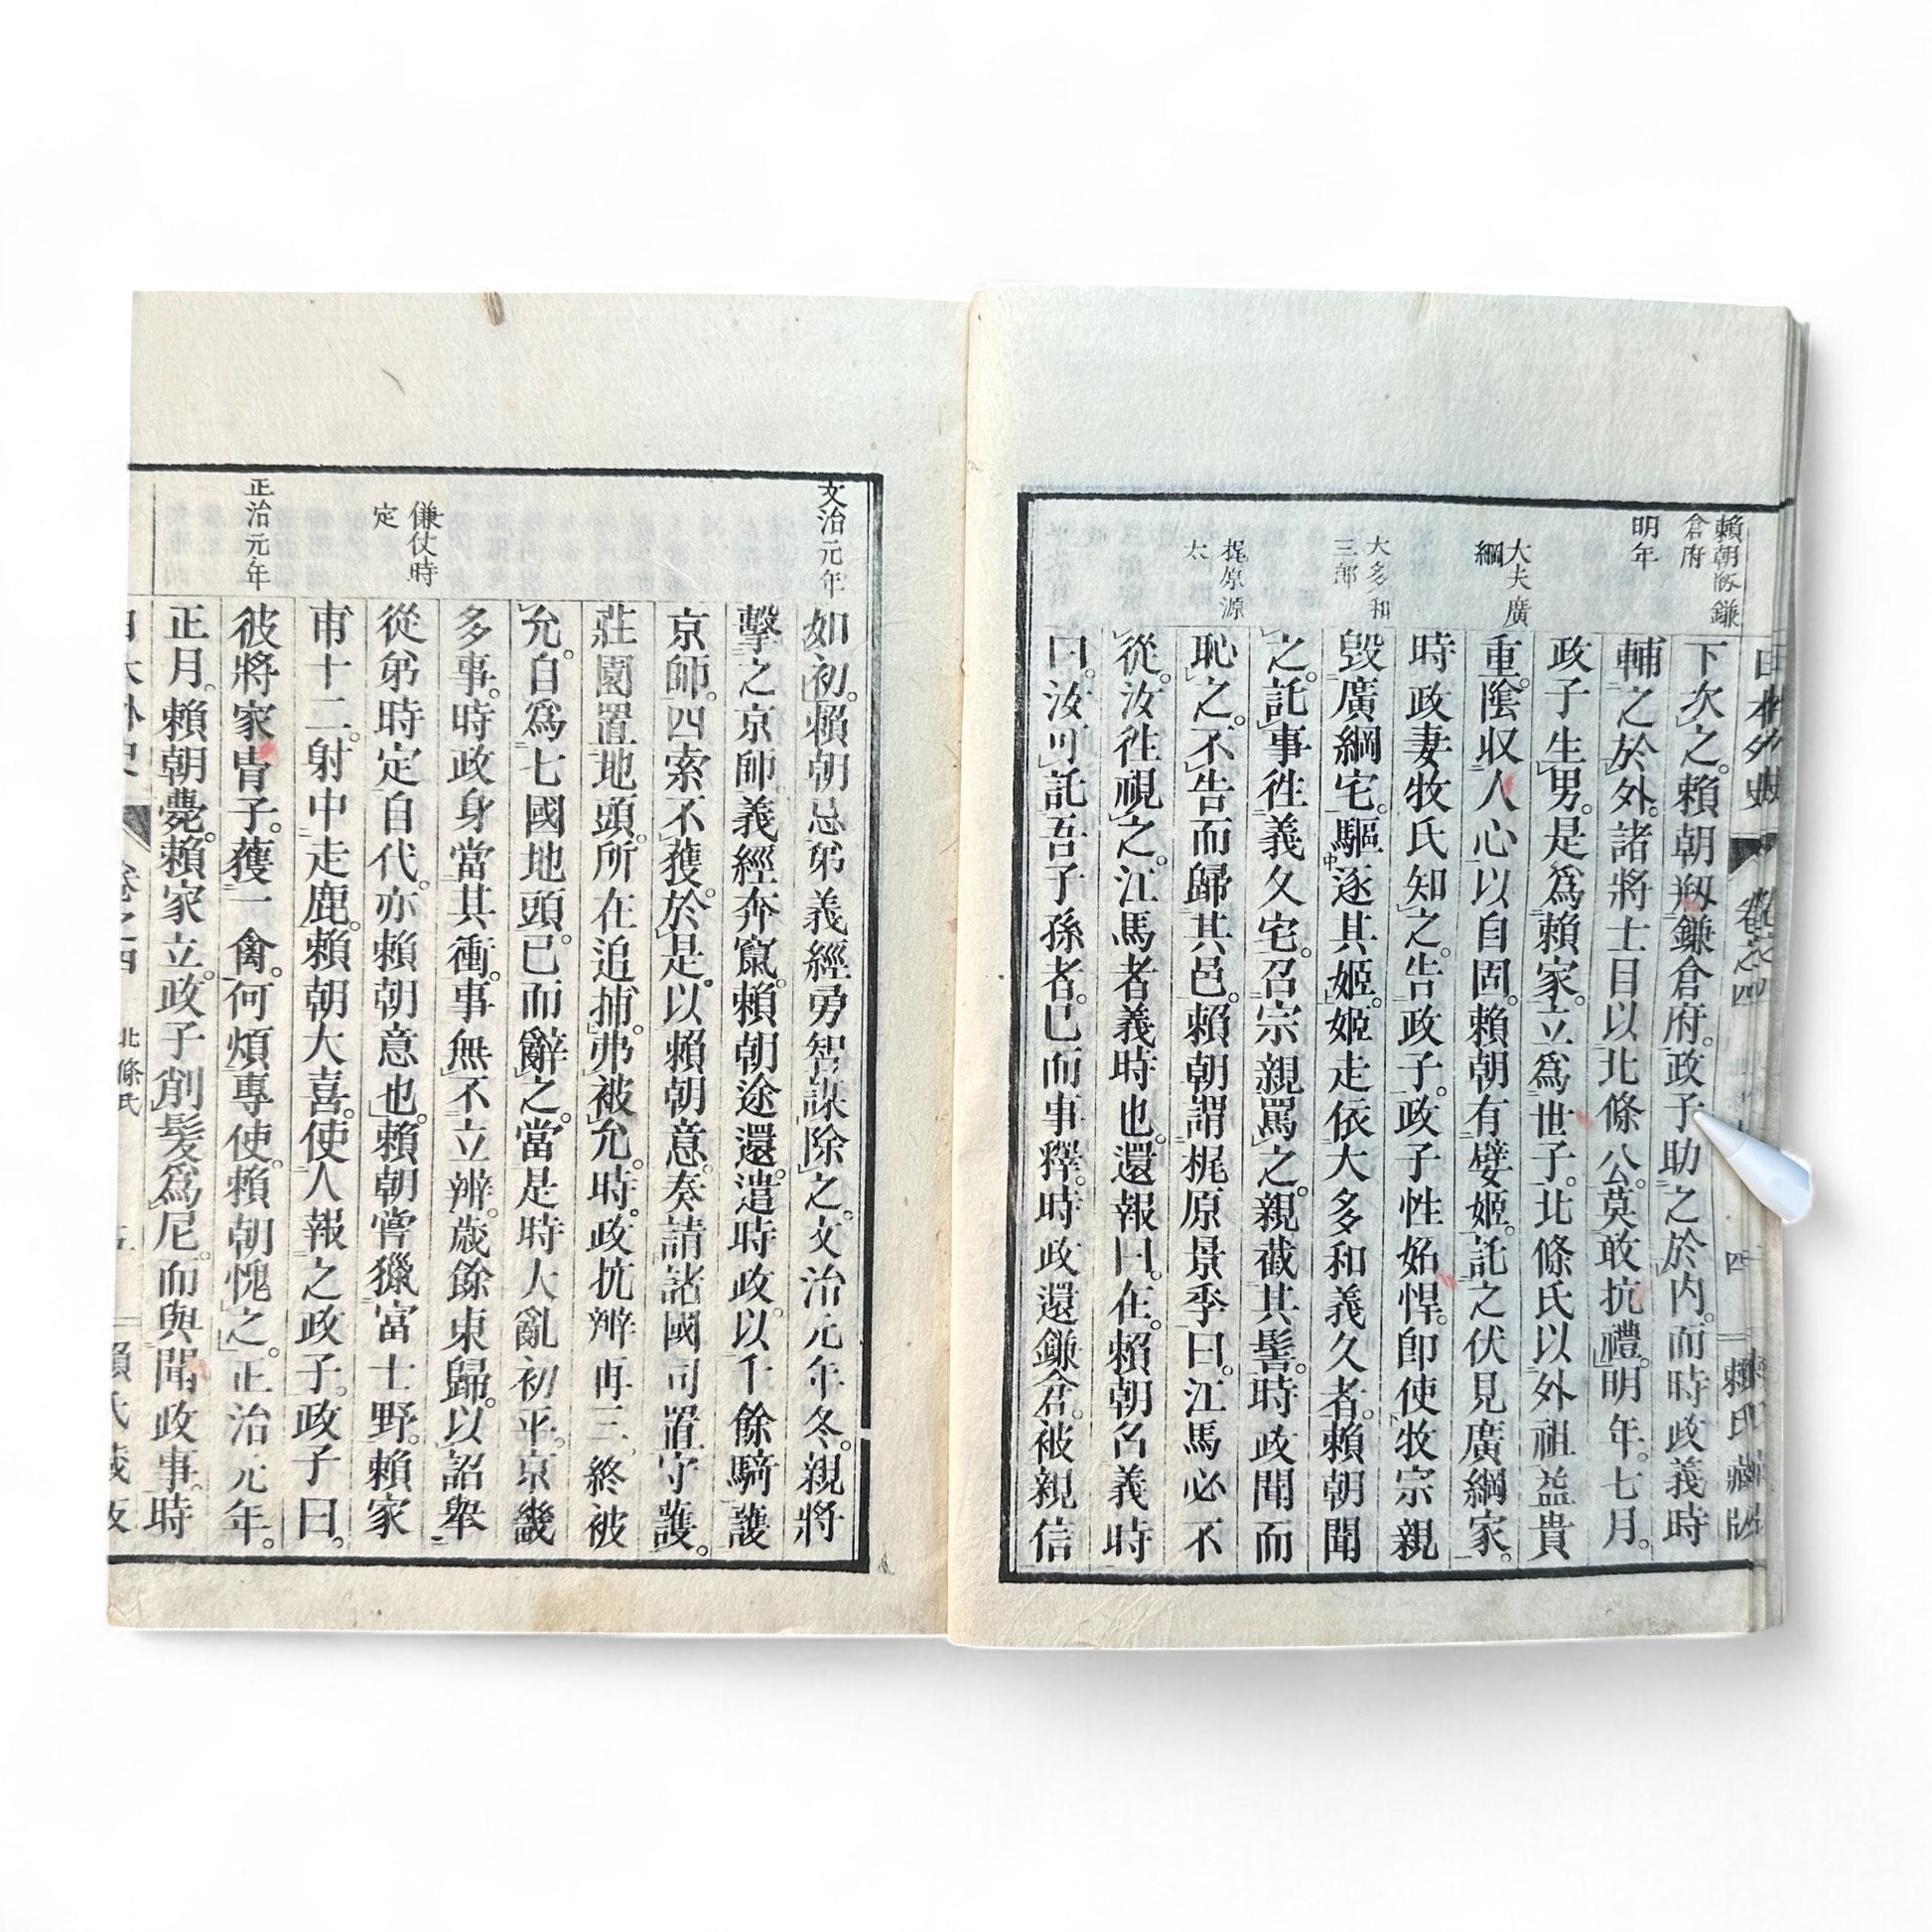 日本外史
卷之四
四
頼氏藏版
賴朝剏鎌
倉府
明年
大夫廣
綱
大多和
三郎
梶原源
太
下次之。賴朝剏鎌倉府。政子助之於内。而時政義時
輔之於外。諸將士目以北條公。莫敢抗禮。明年。七月。
政子生男。是爲賴家。立爲世子。北條氏以外祖益貴
重。陰収人心以自固。賴朝有嬖姬。託之伏見廣綱家。
時政妻牧氏知之。告政子。政子性妬悍。卽使牧宗親
毀廣綱宅。驅逐其姬。姬走依大多和義久者。賴朝聞
之。託事徃義久宅。召宗親罵之。親截其髻。時政聞而
恥之。不告而歸其邑。賴朝謂梶原景季曰。江馬必不
從。汝徃視之。江馬者義時也。還報曰。在。賴朝名義時
曰。汝可託吾子孫者。已而事釋。時政還鎌倉。被親信
文治元年
傔仗時
定
正治元年
如初。賴朝忌弟義經勇智。謀除之。文治元年冬。親將
擊之京師。義經奔竄。賴朝途還。遣時政。以千餘騎護
京師。四索不獲。於是。以賴朝意。奏請諸國司置守護。
莊園置地頭。所在追捕。弗被允。時。政抗辨再三。終被
允。自爲七國地頭。已而辭之。當是時大亂初平。京畿
多事。時政身當其衝。事無不立辨。歲餘東歸。以詔舉
從弟時定自代。亦賴朝意也。賴朝嘗獵富士野。賴家
甫十二。射中走鹿。賴朝大喜。使人報之政子。政子曰。
彼將家胄子。獲一禽。何煩專使。賴朝愧之。正治元年。
正月。賴朝薨。賴家立。政子削髮爲尼。而與聞政事。時
日本外史
卷之四
北條氏
五
頼氏藏版